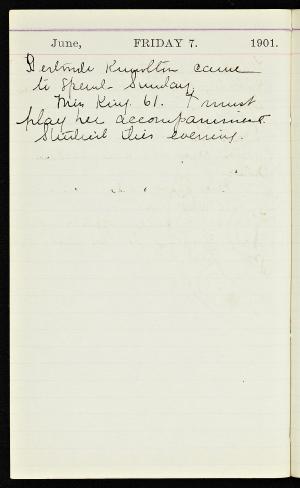 June, FRIDAY 7. 1901.
Gertrude Knowlton came
to spend Sunday.
Miss King 61. I must
play her accompaniment
Studied this evening.